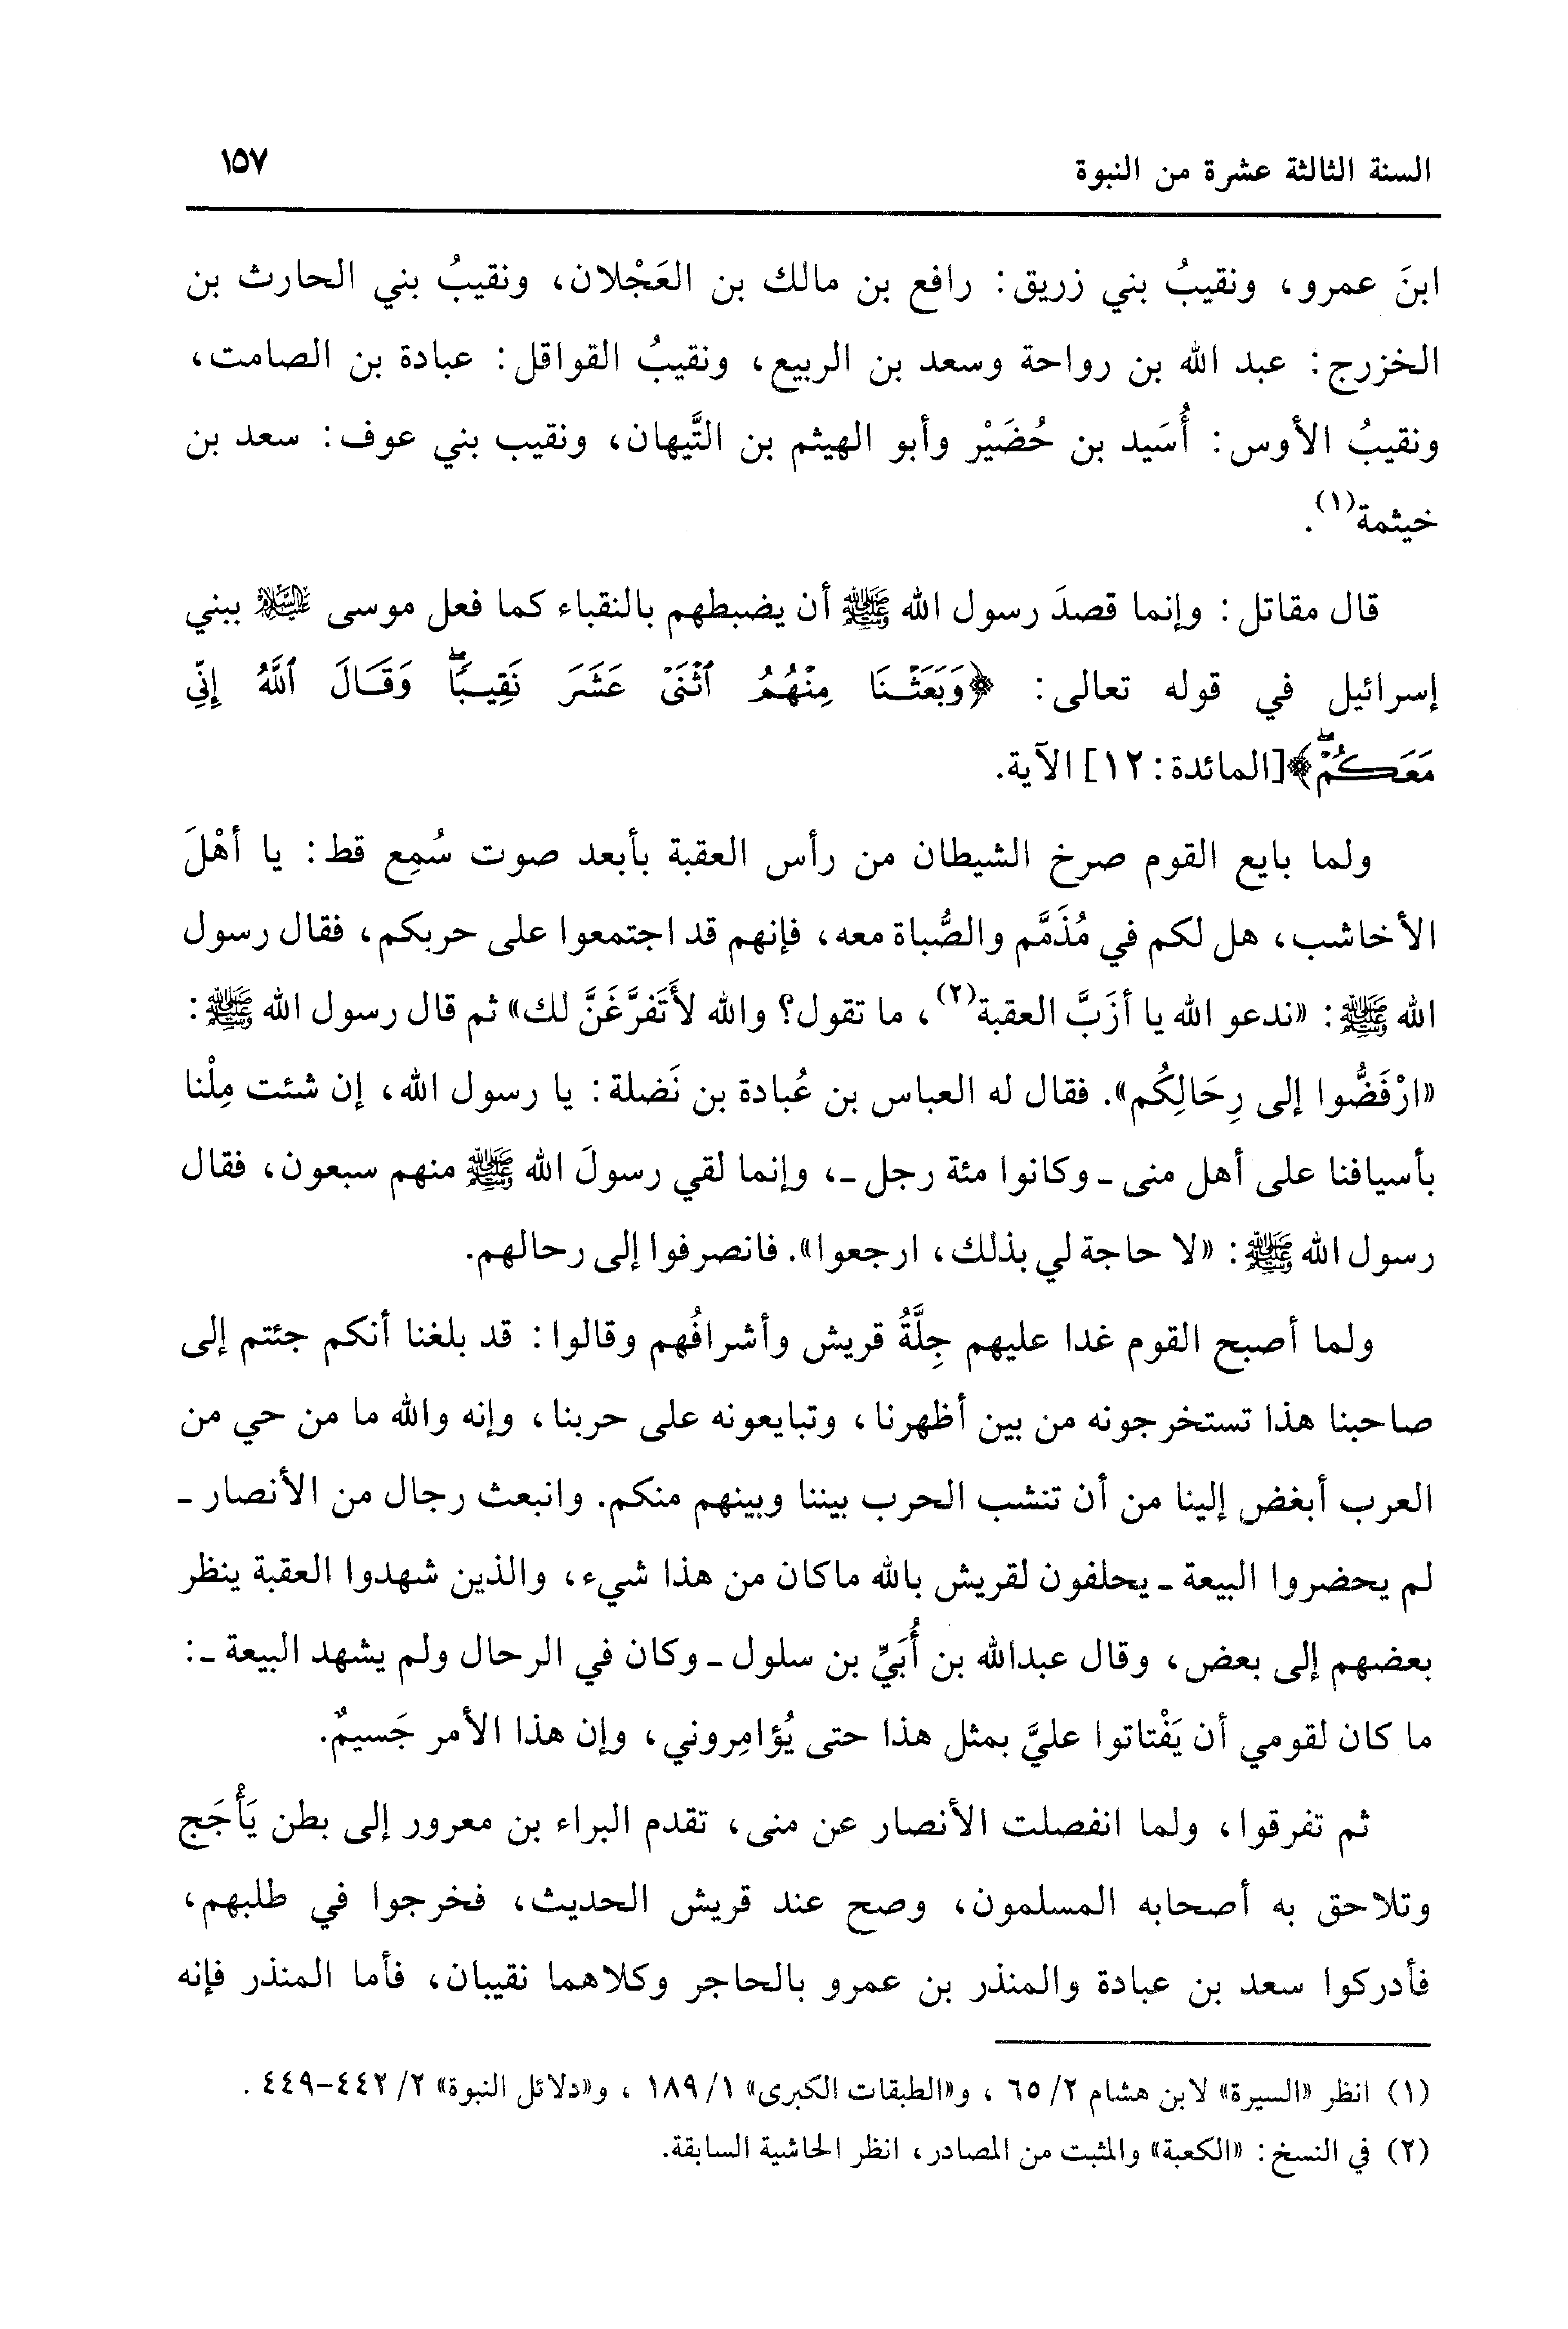 السنة الثالثة عشرة من النبوة ١٥٧
ابنَ عمرو، ونقيبُ بني زريق: رافع بن مالك بن العَجْلان، ونقيبُ بني الحارث بن
الخزرج: عبد الله بن رواحة وسعد بن الربيع، ونقيبُ القواقل: عبادة بن الصامت،
ونقيبُ الأوس: أُسَيد بن حُضَيْر وأبو الهيثم بن التَّيهان، ونقيب بني عوف: سعد بن
خيثمة(١).
قال مقاتل: وإنما قصدَ رسول الله ﷺ أن يضبطهم بالنقباء كما فعل موسى عليه السلام ببني
إسرائيل في قوله تعالى: ﴿وَبَعَثْنَا مِنْهُمُ ٱثْنَىْ عَشَرَ نَقِيبًاۖ وَقَالَ ٱللَّهُ إِنِّى
مَعَكُمْۖ﴾ [المائدة: ١٢] الآية.
ولما بايع القوم صرخ الشيطان من رأس العقبة بأبعد صوت سُمِع قط: يا أهْلَ
الأخاشب، هل لكم في مُذَمَّم والصُّباة معه، فإنهم قد اجتمعوا على حربكم، فقال رسول
الله ﷺ: «ندعو الله يا أزَبَّ العقبة(٢)، ما تقول؟ والله لأَتَفرَّغَنَّ لك» ثم قال رسول الله ﷺ:
«ارْفَضُّوا إلى رِحَالِكُم». فقال له العباس بن عُبادة بن نَضلة: يا رسول الله، إن شئت مِلْنا
بأسيافنا على أهل منى ـ وكانوا مئة رجل ـ، وإنما لقي رسولَ الله ﷺ منهم سبعون، فقال
رسول الله ﷺ: «لا حاجة لي بذلك، ارجعوا». فانصرفوا إلى رحالهم.
ولما أصبح القوم غدا عليهم جِلَّةُ قريش وأشرافُهم وقالوا: قد بلغنا أنكم جئتم إلى
صاحبنا هذا تستخرجونه من بين أظهرنا، وتبايعونه على حربنا، وإنه والله ما من حي من
العرب أبغض إلينا من أن تنشب الحرب بيننا وبينهم منكم. وانبعث رجال من الأنصار ـ
لم يحضروا البيعة ـ يحلفون لقريش بالله ماكان من هذا شيء، والذين شهدوا العقبة ينظر
بعضهم إلى بعض، وقال عبدالله بن أُبَيِّ بن سلول ـ وكان في الرحال ولم يشهد البيعة ـ:
ما كان لقومي أن يَفْتاتوا عليَّ بمثل هذا حتى يُؤامِروني، وإن هذا الأمر جَسيمٌ.
ثم تفرقوا، ولما انفصلت الأنصار عن منى، تقدم البراء بن معرور إلى بطن يَأْجَج
وتلاحق به أصحابه المسلمون، وصح عند قريش الحديث، فخرجوا في طلبهم،
فأدركوا سعد بن عبادة والمنذر بن عمرو بالحاجر وكلاهما نقيبان، فأما المنذر فإنه
(١) انظر «السيرة» لابن هشام ٢/ ٦٥ ، و«الطبقات الكبرى» ١/ ١٨٩ ، و«دلائل النبوة» ٢/ ٤٤٢-٤٤٩ .
(٢) في النسخ: «الكعبة» والمثبت من المصادر، انظر الحاشية السابقة.